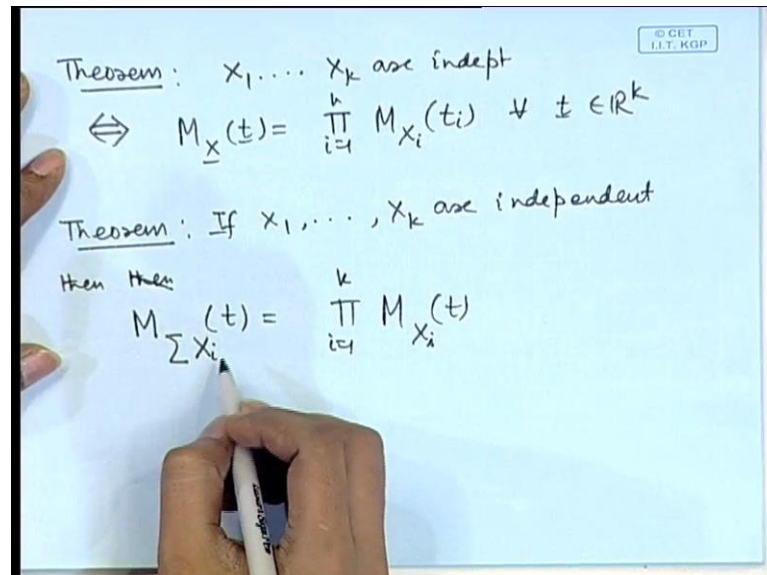 © CET
I.I.T. KGP
Theorem : X₁ .... Xₖ are indept
⇔ M_X(t) = ∏_{i=1}^{k} M_{Xᵢ}(tᵢ) ∀ t ∈ ℝᵏ
Theorem : If X₁, ..., Xₖ are independent
then then
M_{∑Xᵢ}(t) = ∏_{i=1}^{k} M_{Xᵢ}(t)